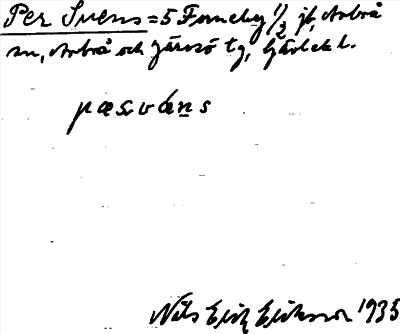 Per Svens = 5 Forneby 1/2 jb, Arbrå
sn, Arbrå och Järvsö tg, Gävleb. l.
pæsvéns
Nils Erik Eriksson 1935